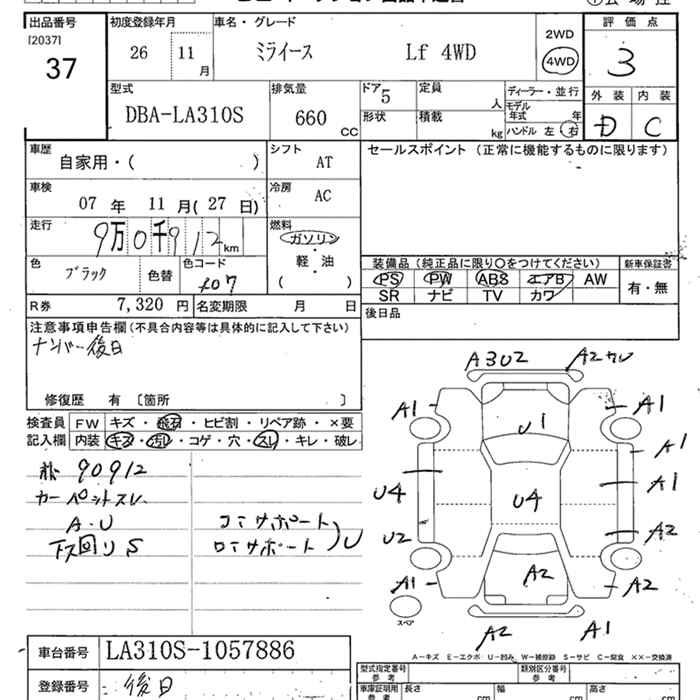 出品番号
[2037]
37
初度登録年月
26 11月
車名・グレード
ミライース Lf 4WD
2WD
4WD
評価点
3
外装 内装
D C
型式
DBA-LA310S
排気量
660 CC
ドア 5
形状
定員 人
積載 kg
ディーラー・並行
モデル年式 年
ハンドル 左 右
車歴
自家用・( )
シフト
AT
セールスポイント (正常に機能するものに限ります)
車検
07 年 11 月( 27 日)
冷房
AC
走行
9万0千912 km
燃料
ガソリン
軽・油
( )
色
ブラック
色替
色コード
X07
装備品 (純正品に限り○をつけてください)
新車保証書
PS PW ABS エアB AW
SR ナビ TV カワ
有・無
R券 7,320 円
名変期限 月 日
後日品
注意事項申告欄 (不具合内容等は具体的に記入して下さい)
ナンバー後日
修復歴 有 [箇所 ]
検査員記入欄
FW キズ・飛石・ヒビ割・リペア跡・×要
内装 キズ・汚レ・コゲ・穴・スレ・キレ・破レ
90912
カーペットスレ
A・U
下回りS
コアサポート
ロアサポート
U
A3U2 A2カレ
A1 A1
U1
A1
A1
U4 U4
U2 A2
A1 A2 A2
スペア
A2 A1
A－キズ E－エクボ U－凹み W－補修跡 S－サビ C－腐食 ××－交換済
車台番号 LA310S-1057886
登録番号 後日
型式指定番号 参考
類別区分番号 参考
車庫証明用 参考
長さ cm
幅 cm
高さ cm